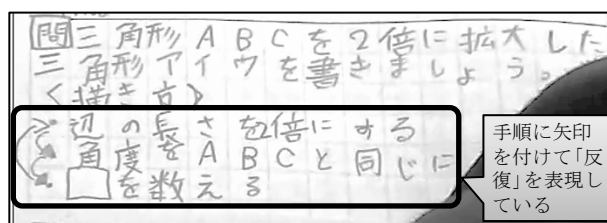 問三角形ABCを2倍に拡大した
三角形アイウを書きましょう。
〈描き方〉
辺の長さを2倍にする
角度をABCと同じに
□を数える
手順に矢印
を付けて「反
復」を表現し
ている